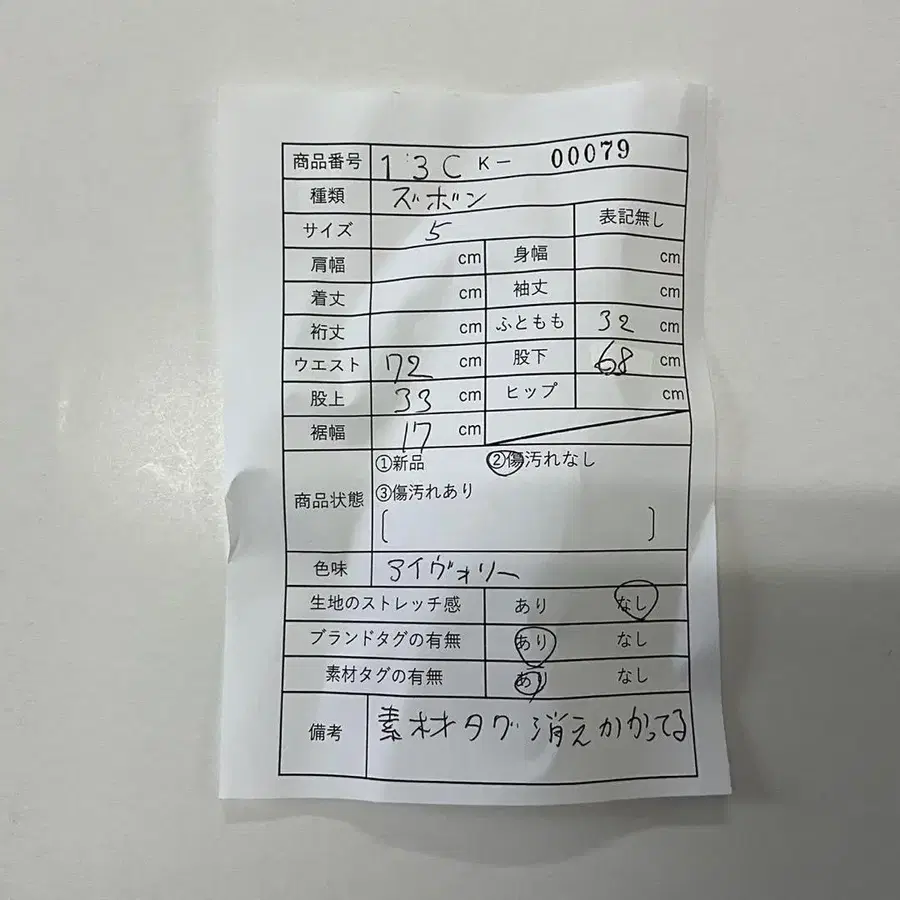 商品番号 13C K- 00079
種類 ズボン
サイズ 5 表記無し
肩幅 cm 身幅 cm
着丈 cm 袖丈 cm
裄丈 cm ふともも 32 cm
ウエスト 72 cm 股下 68 cm
股上 33 cm ヒップ cm
裾幅 17 cm
商品状態 ①新品 ②傷汚れなし
③傷汚れあり
[ ]
色味 アイヴォリー
生地のストレッチ感 あり なし
ブランドタグの有無 あり なし
素材タグの有無 あり なし
備考 素材タグ消えかかってる